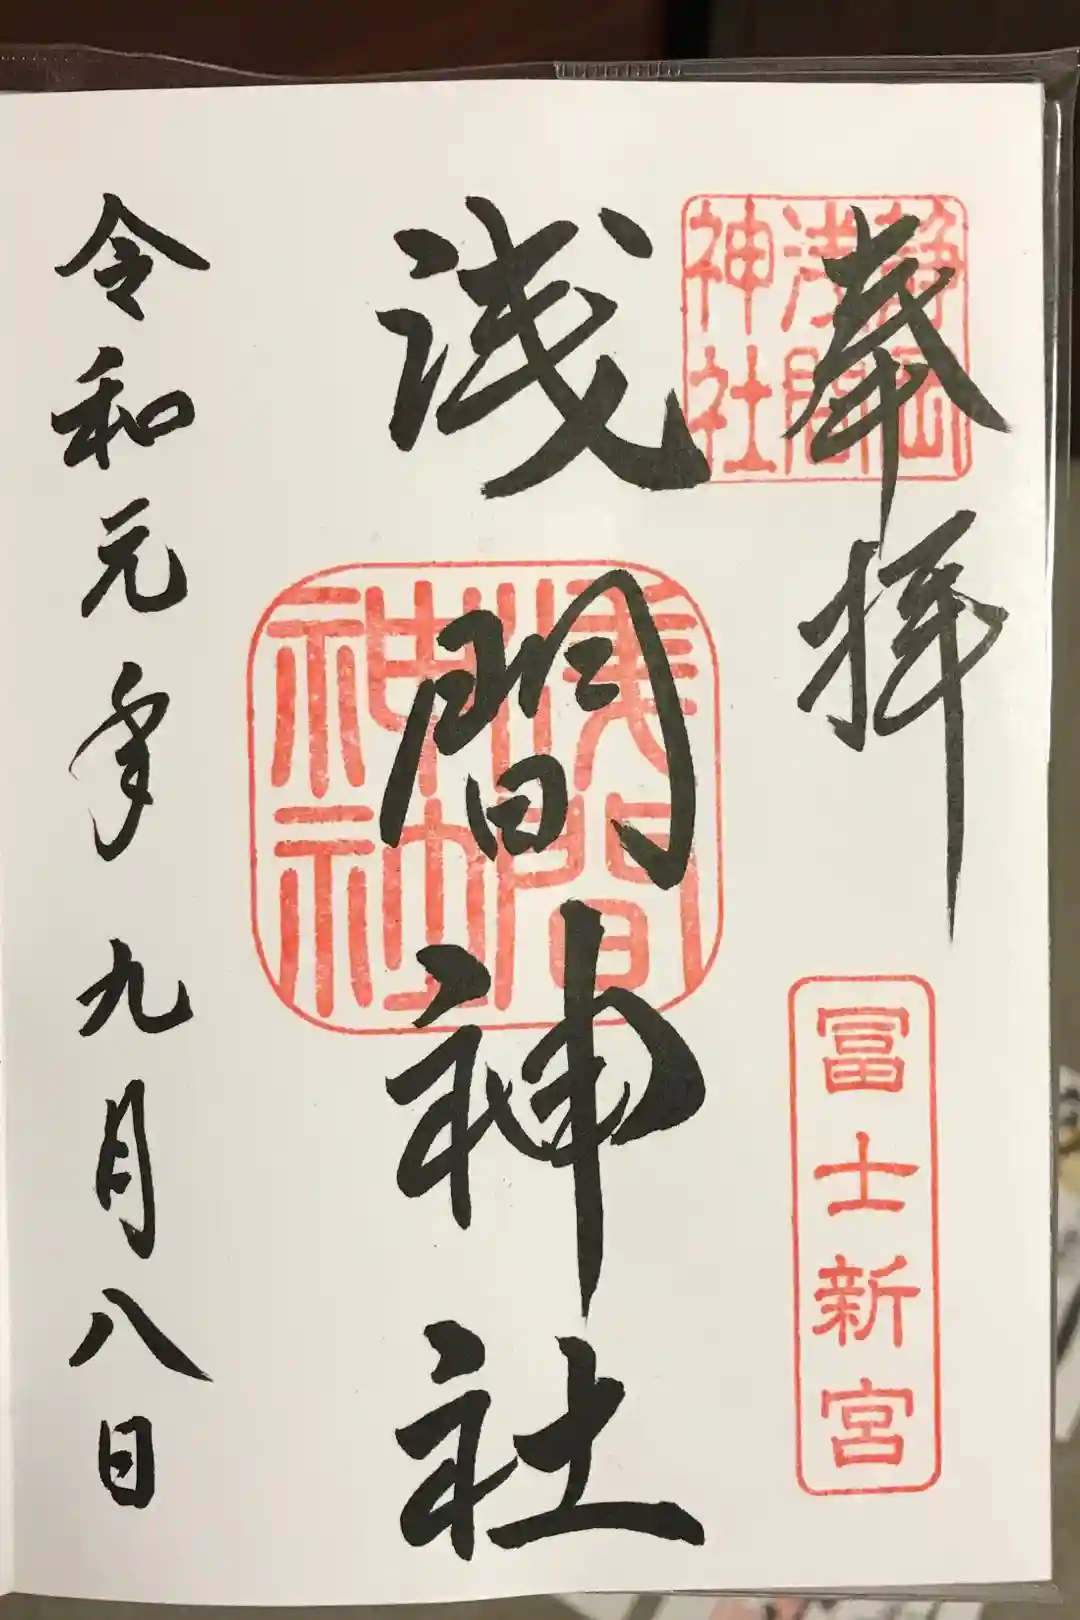 奉拝
静岡
浅間
神社
冨士新宮
浅間神社
浅間
神社
令和元年九月八日